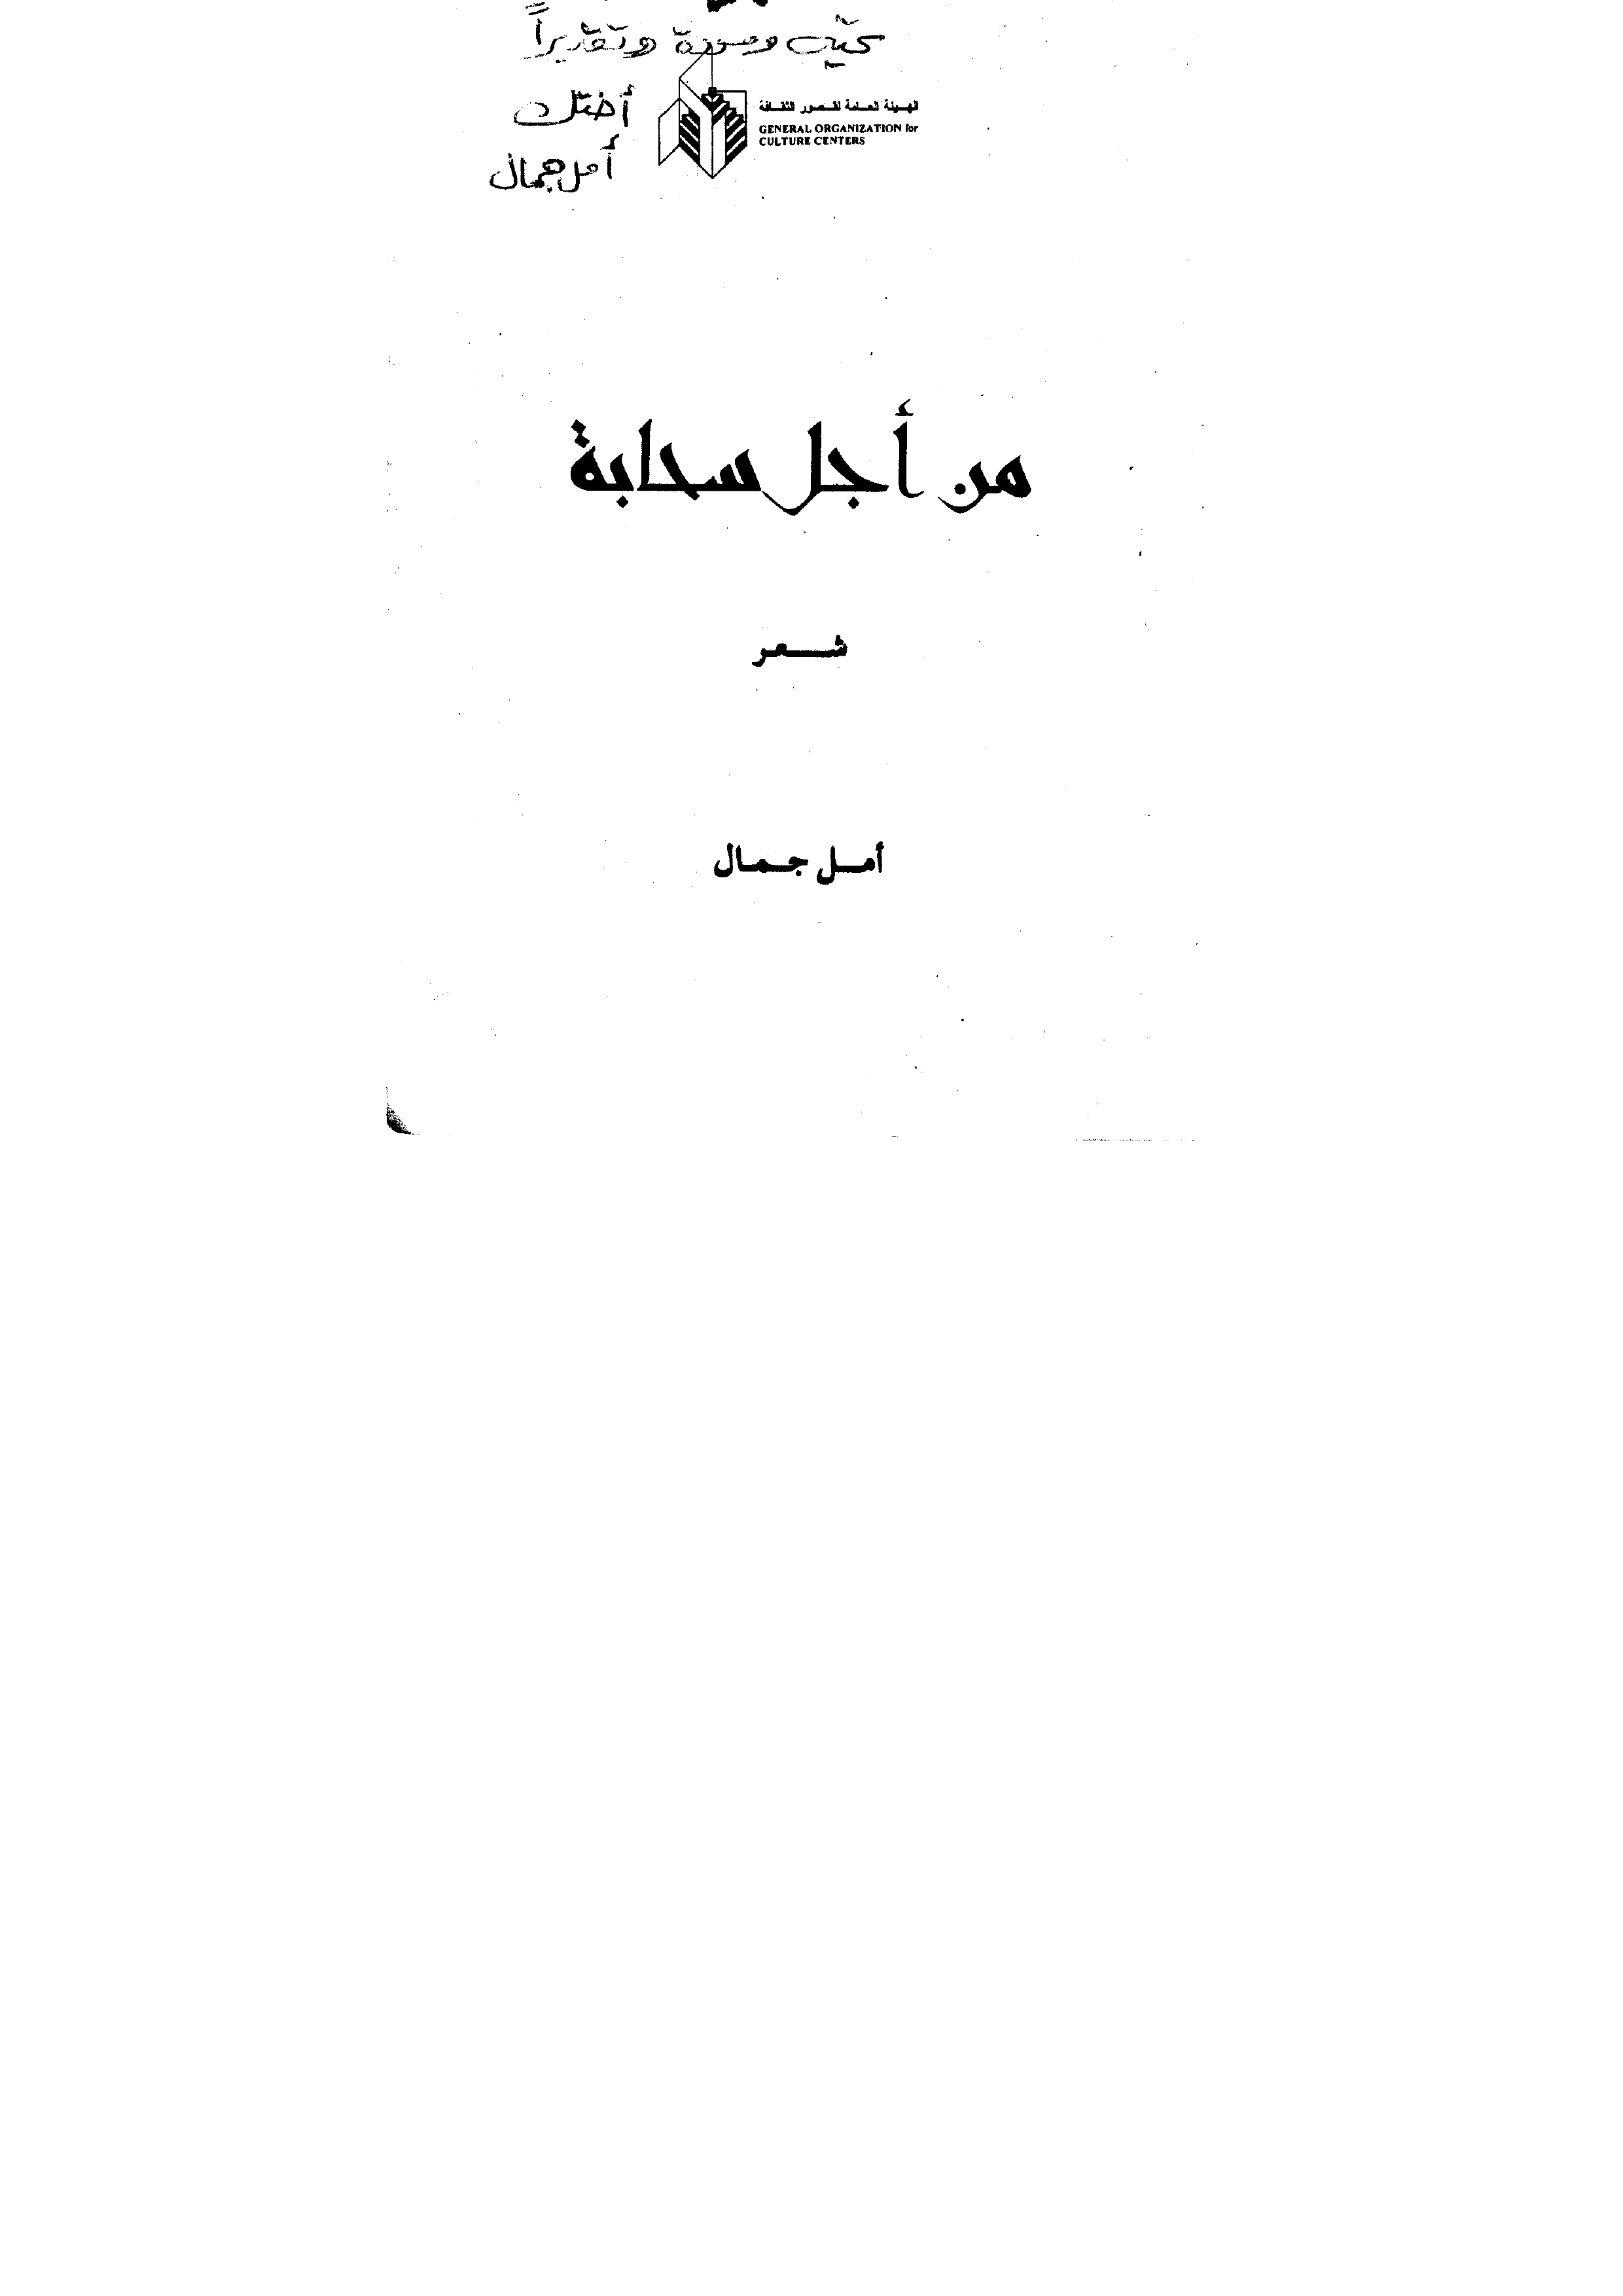 وتقديراً
أختك
أمل جمال
الهيئة العامة لقصور الثقافة
GENERAL ORGANIZATION for
CULTURE CENTERS
من أجل سحابة
شعر
أمل جمال